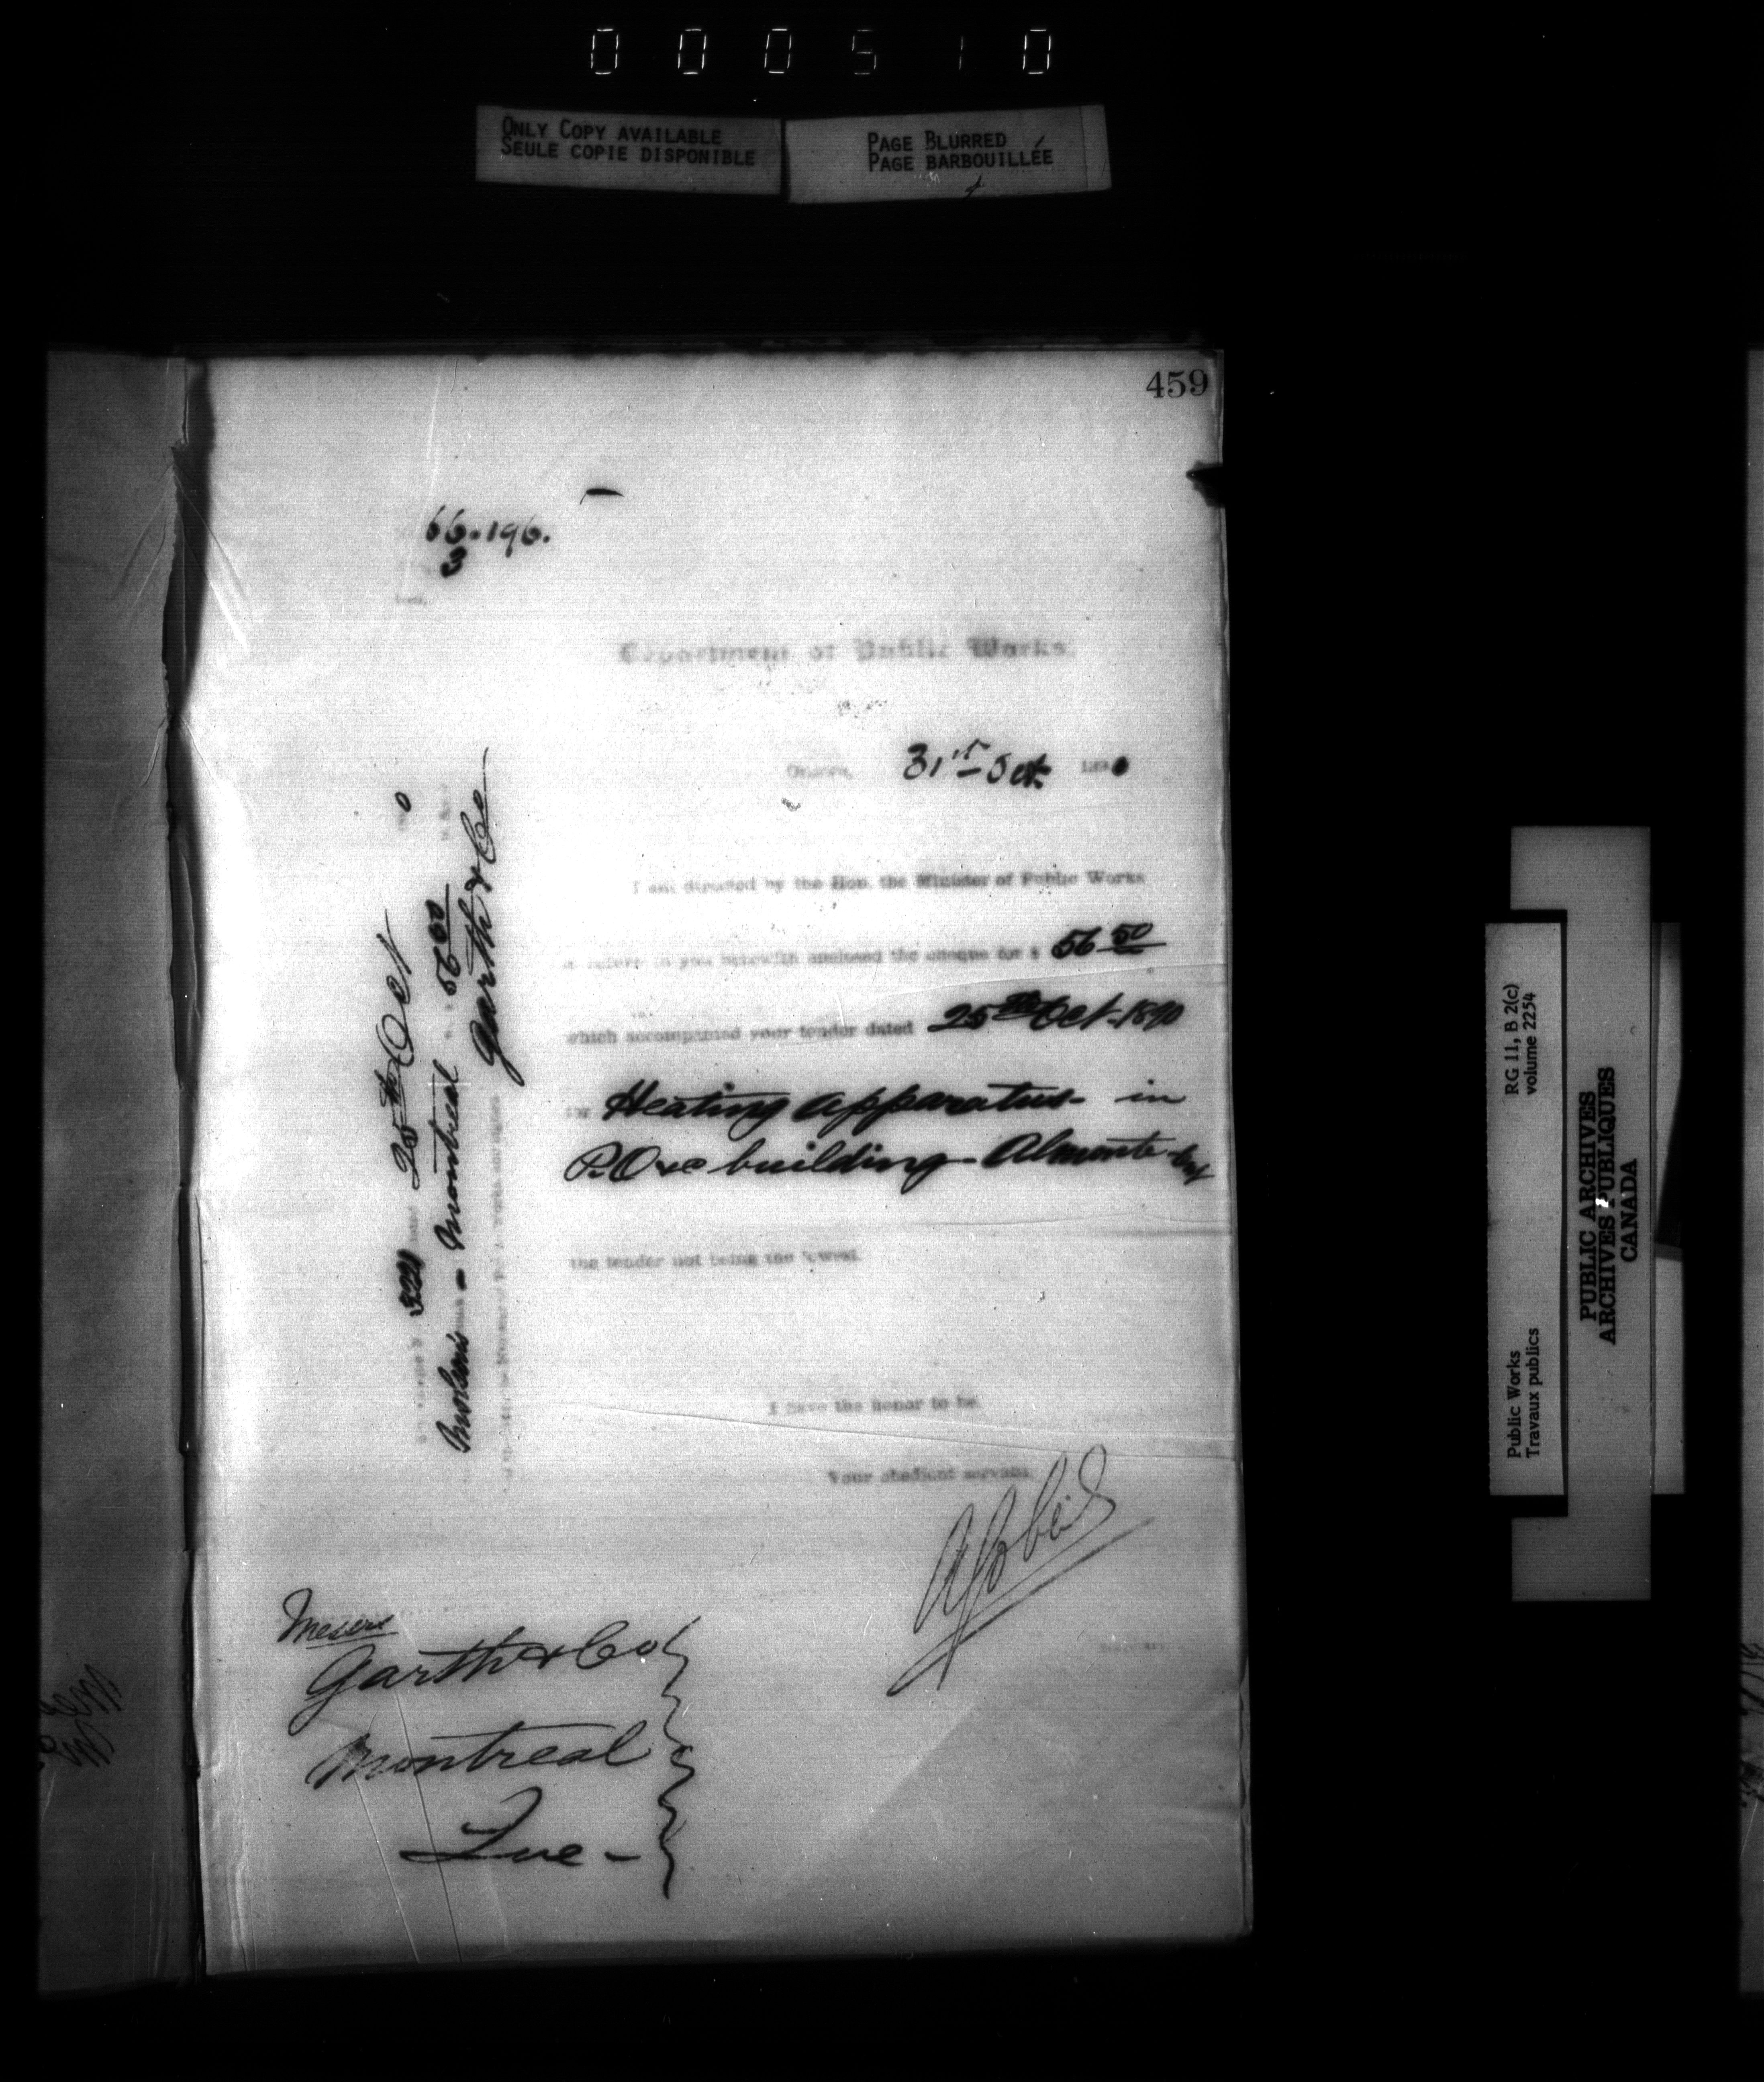 000510
ONLY COPY AVAILABLE
SEULE COPIE DISPONIBLE
PAGE BLURRED
PAGE BARBOUILLÉE
459
66.196.
3
Department of Public Works
Ottawa, 31st Oct. 1890
I am directed by the Hon. the Minister of Public Works
to return to you herewith enclosed the cheque for $ 56 50
which accompanied your tender dated 25th Oct. 1890
for Heating apparatus in
P.O. &c building - Almonte Ont
the tender not being the lowest.
I have the honor to be,
Your obedient servant,
Secretary.
Messrs
Garth & Co
Montreal
Que -
25th Oct 0
Molson's - Montreal 56 50
Garth & Co
RG 11, B 2(c)
volume 2254
Public Works
Travaux publics
PUBLIC ARCHIVES
ARCHIVES PUBLIQUES
CANADA